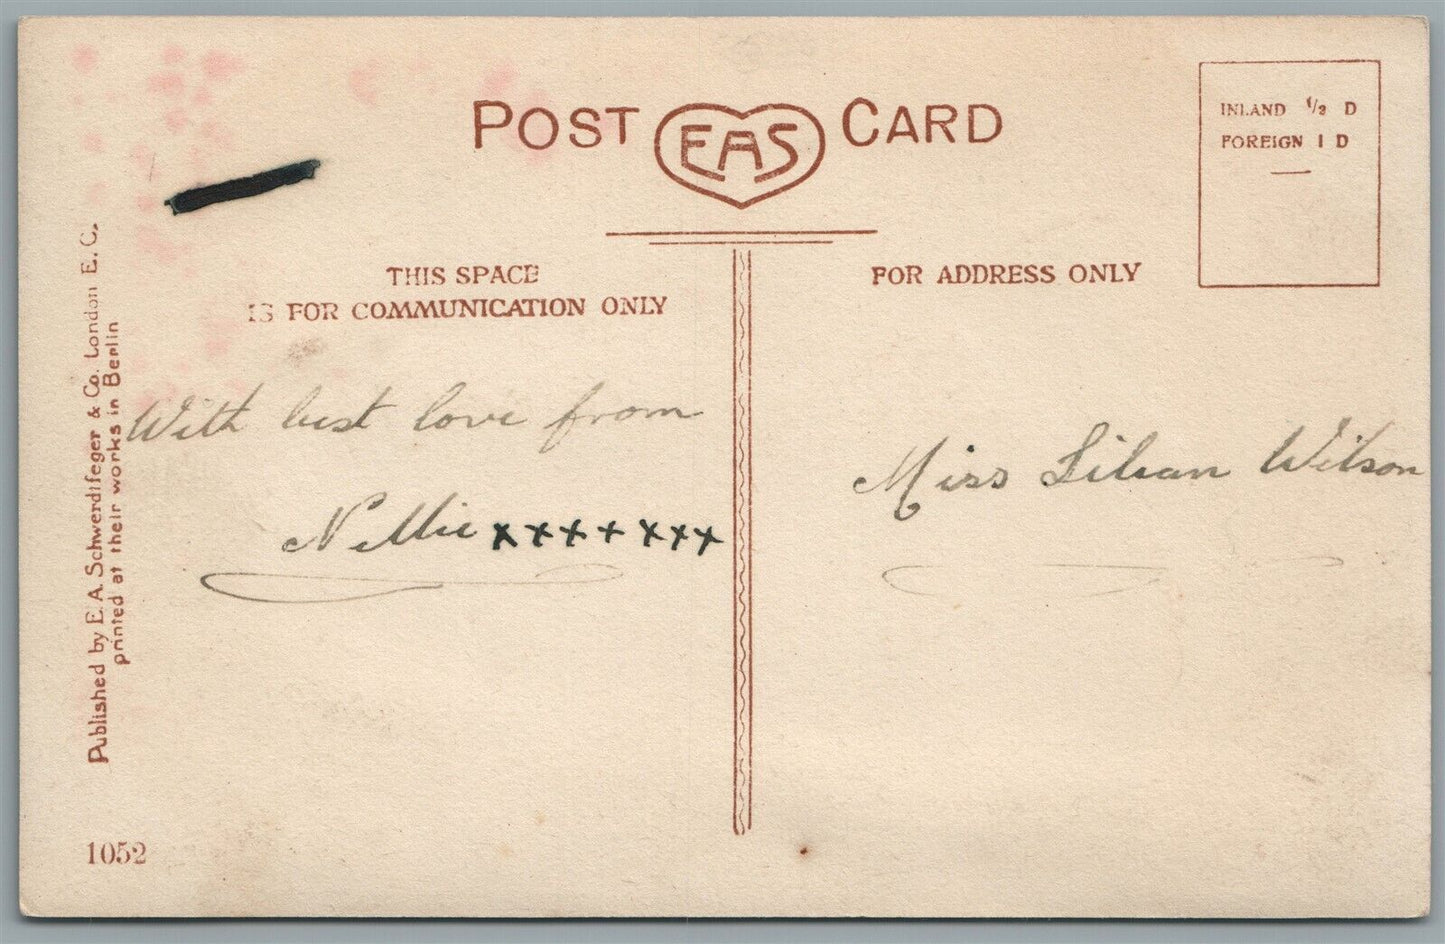 POST EAS CARD
INLAND 1/2 D
FOREIGN 1 D
THIS SPACE
IS FOR COMMUNICATION ONLY
FOR ADDRESS ONLY
With best love from
Nellie xxxxxxx
Miss Lilian Wilson
Published by E.A. Schwerdtfeger & Co. London E.C.
printed at their works in Berlin
1052